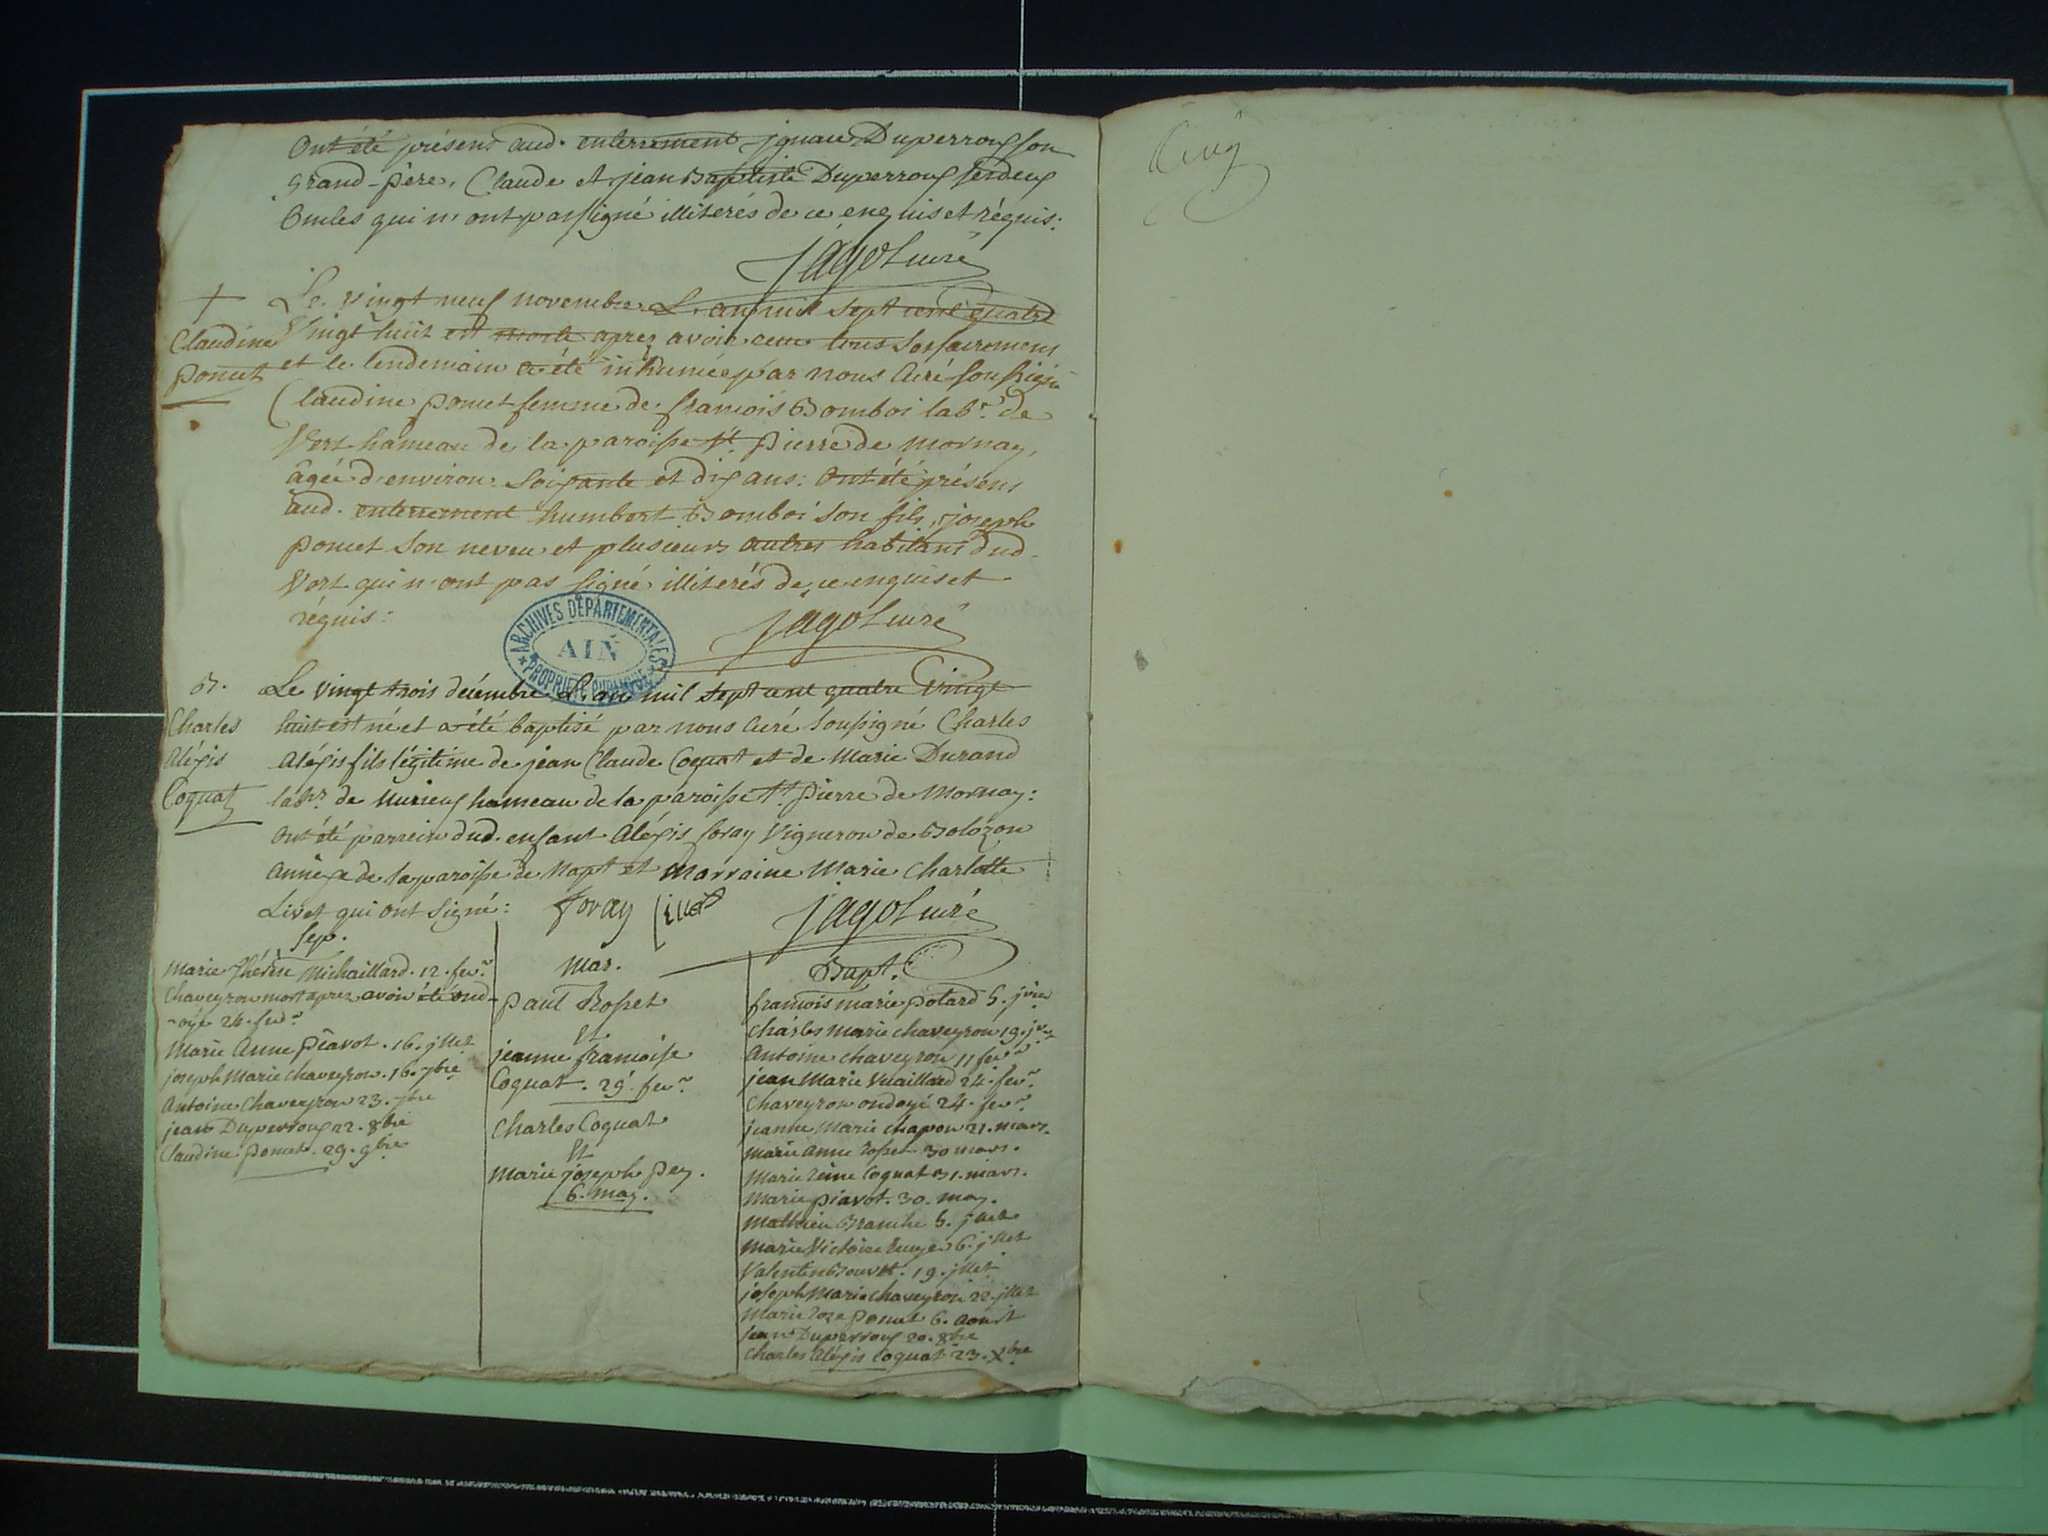 Ont été présens aud. enterrement ignace Duperroux son
grand-père, Claude et jean Baptiste Duperroux ses deux
Oncles qui n'ont pas signé illiterés de ce enquis et réquis:
jagot curé
+ Le vingt neuf novembre L'an mil sept cent quatre
Claudine
vingt huit est morte aprez avoir reçu tous ses sacremens
poncet
et le lendemain a été inhumée par nous Curé soussigné
Claudine poncet femme de françois Bomboi lab.r de
Vort hameau de la paroisse st. pierre de mornay,
âgée d'environ soixante et dix ans: Ont été présens
aud. enterrement humbert Bomboi son fils, joseph
poncet son neveu et plusieurs autres habitans dud.
Vort qui n'ont pas signé illiterés de ce enquis et
réquis:
jagot curé
ARCHIVES DÉPARTEMENTALES
AIN
PROPRIÉTÉ PUBLIQUE
B.
Charles
Aléxis
Coquat
Le vingt trois décembre L'an mil sept cent quatre vingt
huit est né et a été baptisé par nous Curé soussigné Charles
Aléxis fils légitime de jean Claude Coquat et de Marie Durand
lab.r de Murieux hameau de la paroisse st. pierre de Mornay:
Ont été parrein dud. enfant Aléxis Foray Vigneron de Bolozon
Annéxe de la paroisse de Napt et Marraine Marie Charlotte
Livet qui ont signé: Foray jagot curé
Sep.
Marie Thérèse Michaillard. 12. fev.r
Chaveyron mort aprez avoir été ond-
-oyé 24. fev.r
Marie Anne piavot. 16. jllet
joseph Marie chaveyron. 16. 7bre
Antoine Chaveyron 23. 7bre
jean Duperroux 22. 8bre
Claudine poncet. 29. 9bre
Mar.
paul Rosset
Et
jeanne françoise
Coquat. 29. fev.r
Charles Coquat
Et
Marie joseph pey.
6. may.
Bapt.
françois marie potard 5. jver
Charles marie chaveyron 19. jver
Antoine chaveyron 11 fev.r
jean Marie Vuaillard 24. fev.r
Chaveyron ondoyé 24. fev.r
jeanne Marie chapon 21. mars.
marie anne rosset 30 mars.
Marie reine Coquat 31. mars.
Marie piavot. 30. may.
Mathieu Branche 5. jllet
Marie Victoire 6. jllet
Valentin Bouvet. 19. jllet
joseph Marie chaveyron 22. jllet
Marie roze poncet 6. Aoust
jean Duperroux 20. 8bre
Charles Aléxis Coquat 23. Xbre